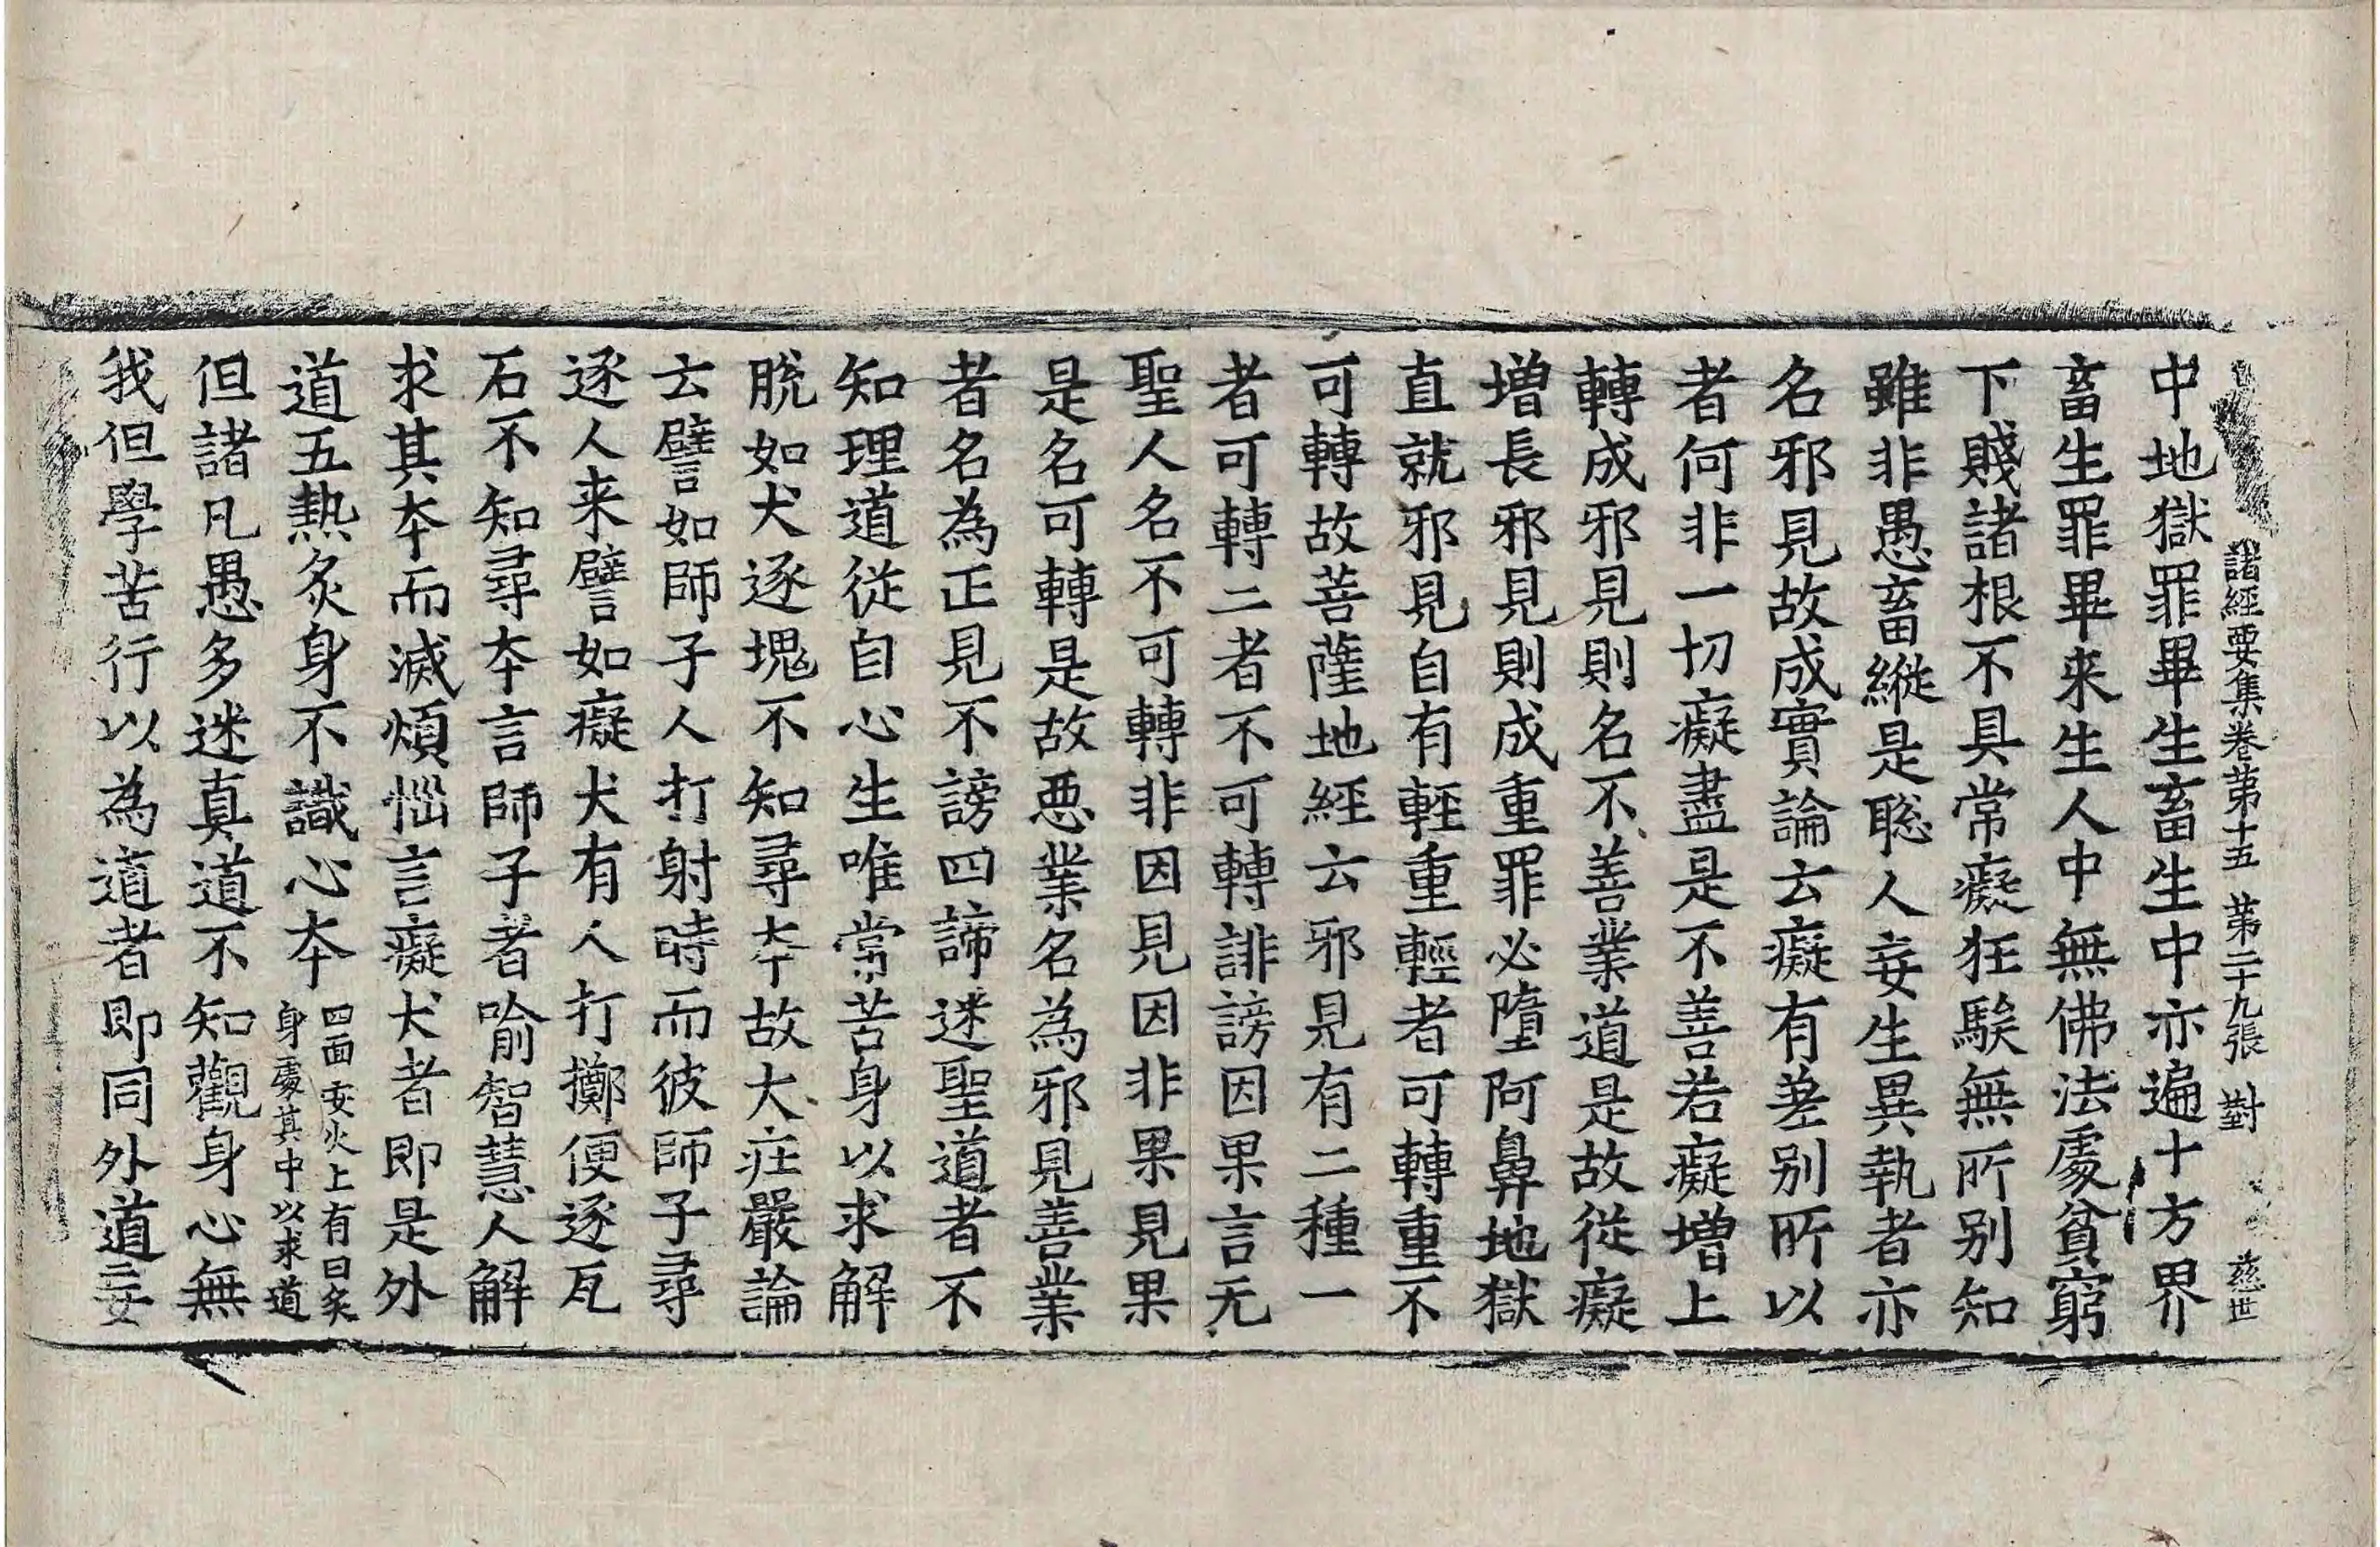 諸經要集卷第十五 第二十九張 對 慈世
中地獄罪畢生畜生中亦遍十方界
畜生罪畢来生人中無佛法處貧窮
下賤諸根不具常癡狂騃無所别知
雖非愚畜縱是聡人妄生異執者亦
名邪見故成實論云癡有差别所以
者何非一切癡盡是不善若癡增上
轉成邪見則名不善業道是故從癡
增長邪見則成重罪必墮阿鼻地獄
直就邪見自有輕重輕者可轉重不
可轉故菩薩地經云邪見有二種一
者可轉二者不可轉誹謗因果言无
聖人名不可轉非因見因非果見果
是名可轉是故惡業名為邪見善業
者名為正見不謗四諦迷聖道者不
知理道從自心生唯常苦身以求解
脱如犬逐塊不知尋夲故大莊嚴論
云譬如師子人打射時而彼師子尋
逐人来譬如癡犬有人打擲便逐瓦
石不知尋夲言師子者喻智慧人解
求其夲而滅煩惱言癡犬者即是外
道五熱炙身不識心夲四面安火上有日炙身處其中以求道
但諸凡愚多迷真道不知觀身心無
我但學苦行以為道者即同外道妄